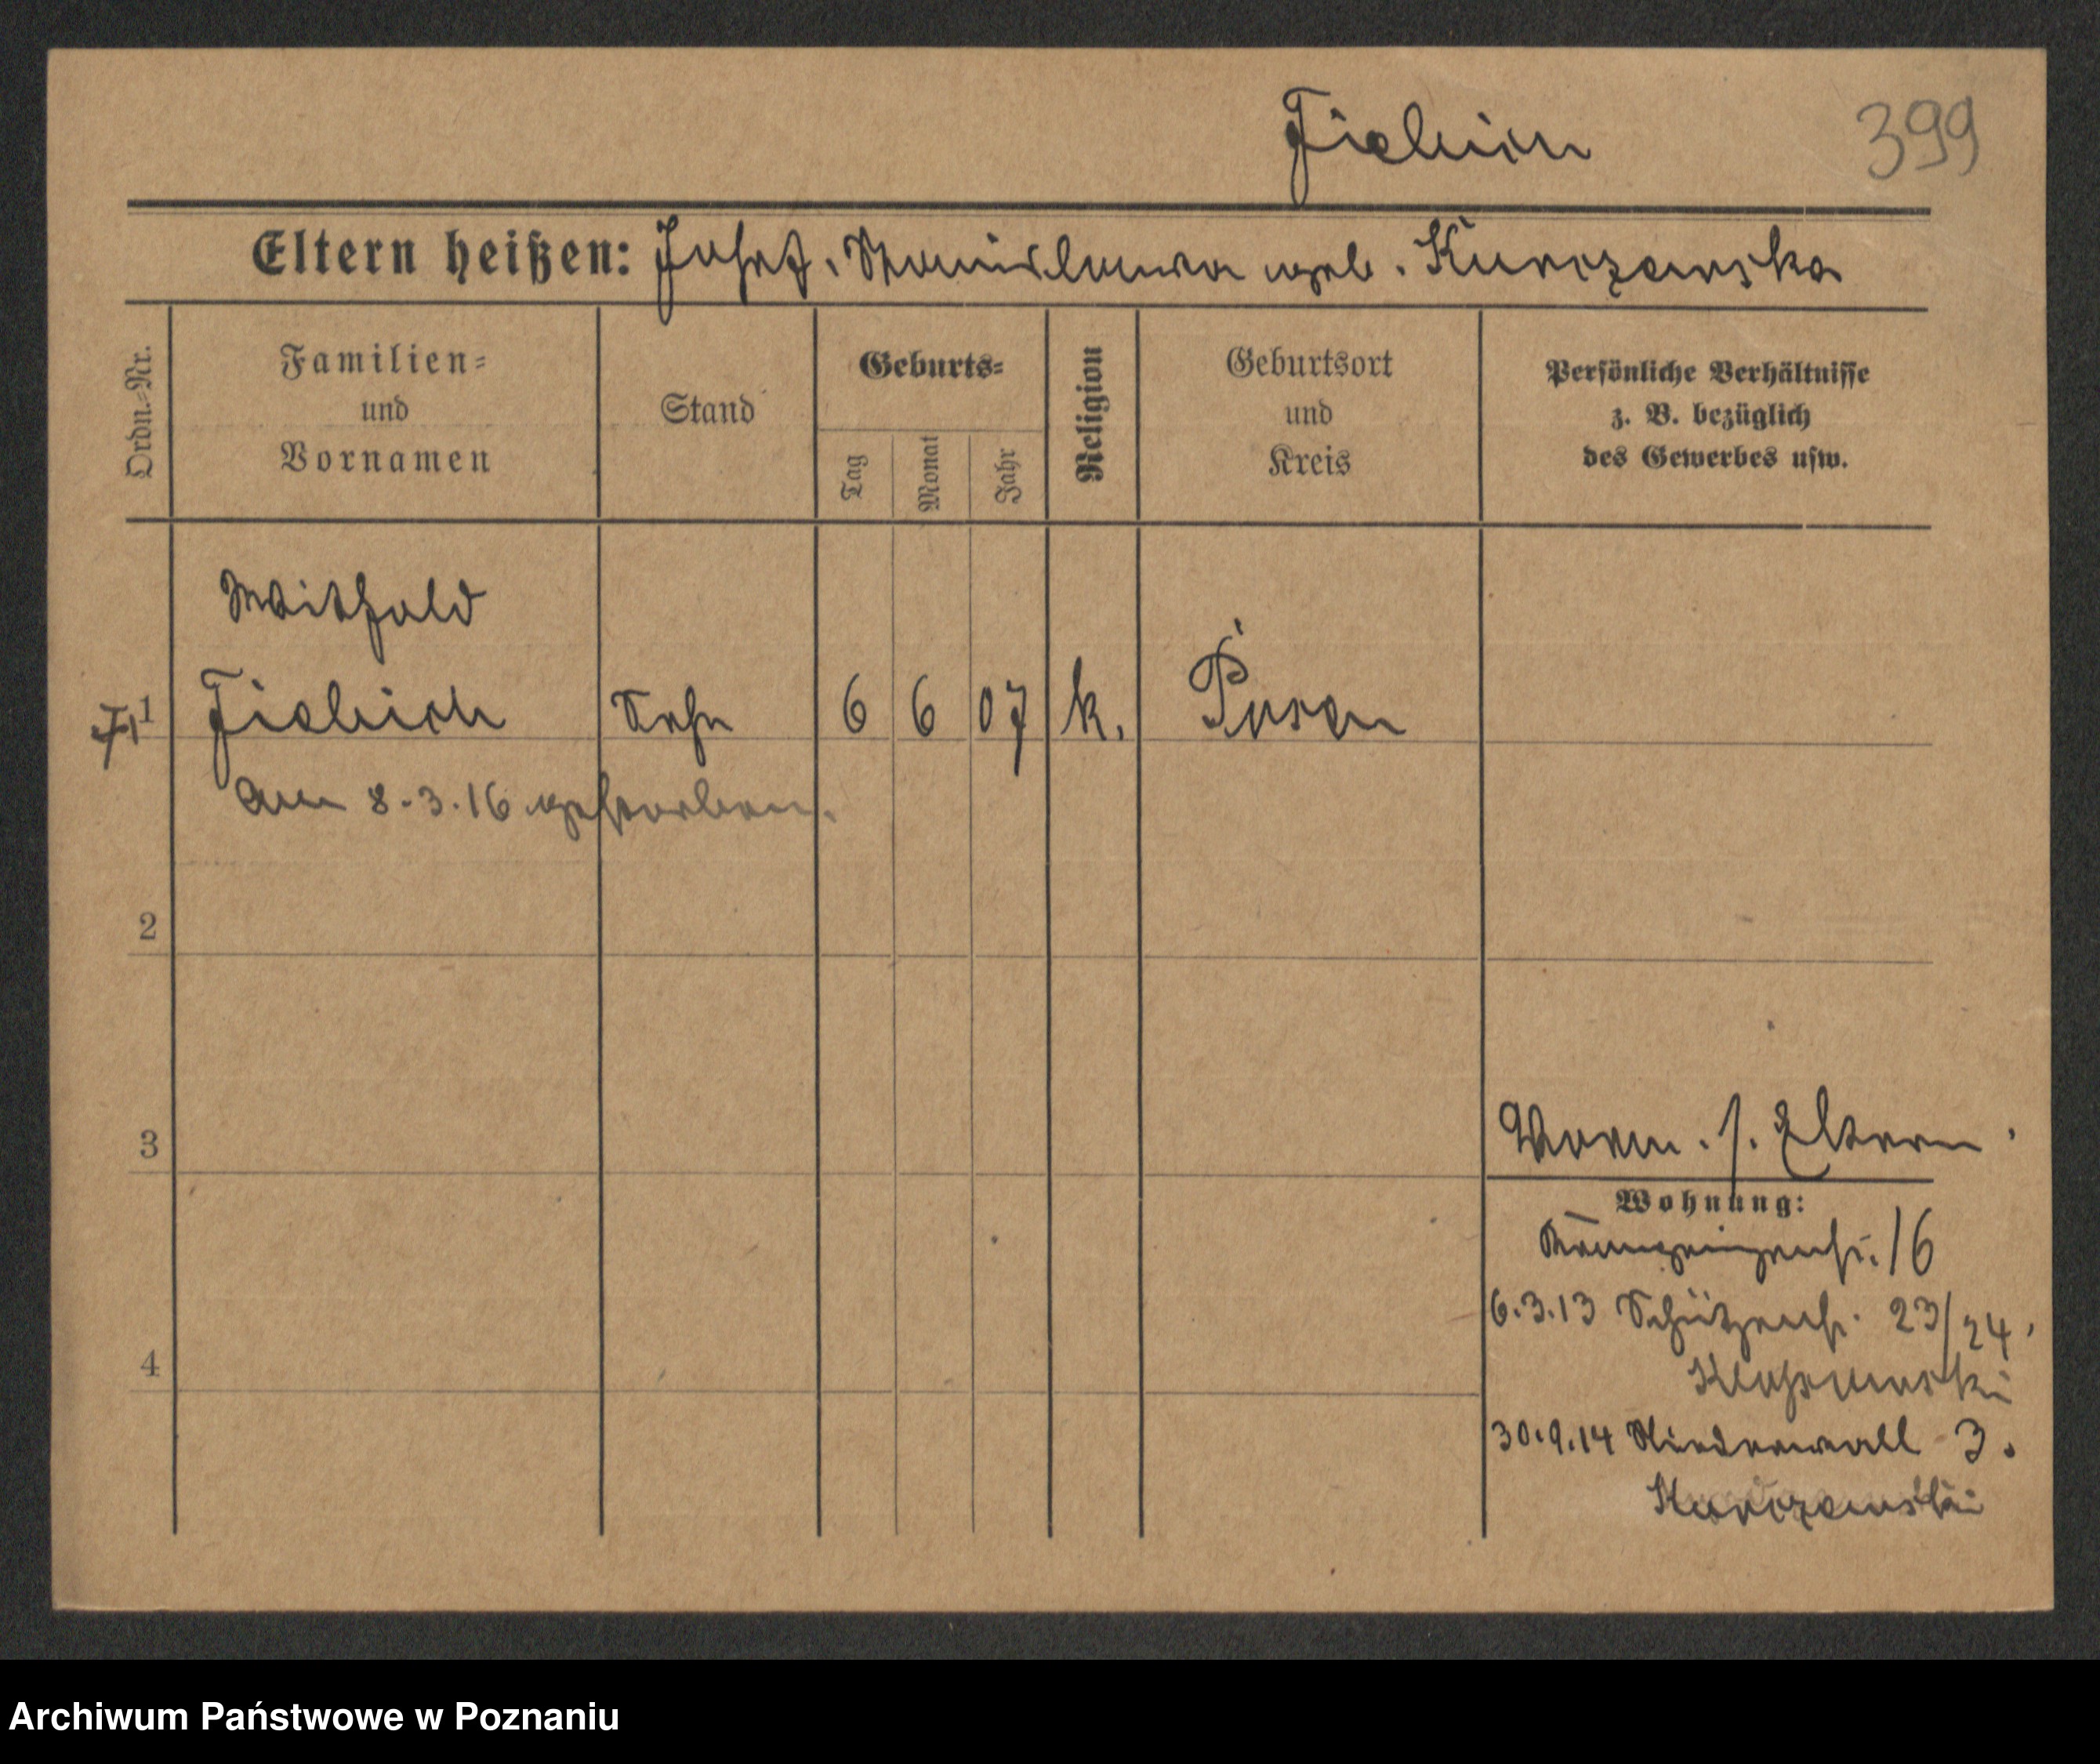 Fiebich
399
Eltern heißen: Josef, Stanislawa geb. Kurczewska
Ordn.-Nr.
Familien- und Vornamen
Stand
Geburts-
Tag
Monat
Jahr
Religion
Geburtsort und Kreis
Persönliche Verhältnisse z. B. bezüglich des Gewerbes usw.
Withold
1 Fiebich Sohn 6 6 07 k. Posen
am 8.3.16 gestorben.
2
3
Verm. s. Eltern.
Wohnung:
16
4
6.3.13 Schützenstr. 23/24.
30.9.14 Niederwall 3.
Kurczewski
Archiwum Państwowe w Poznaniu